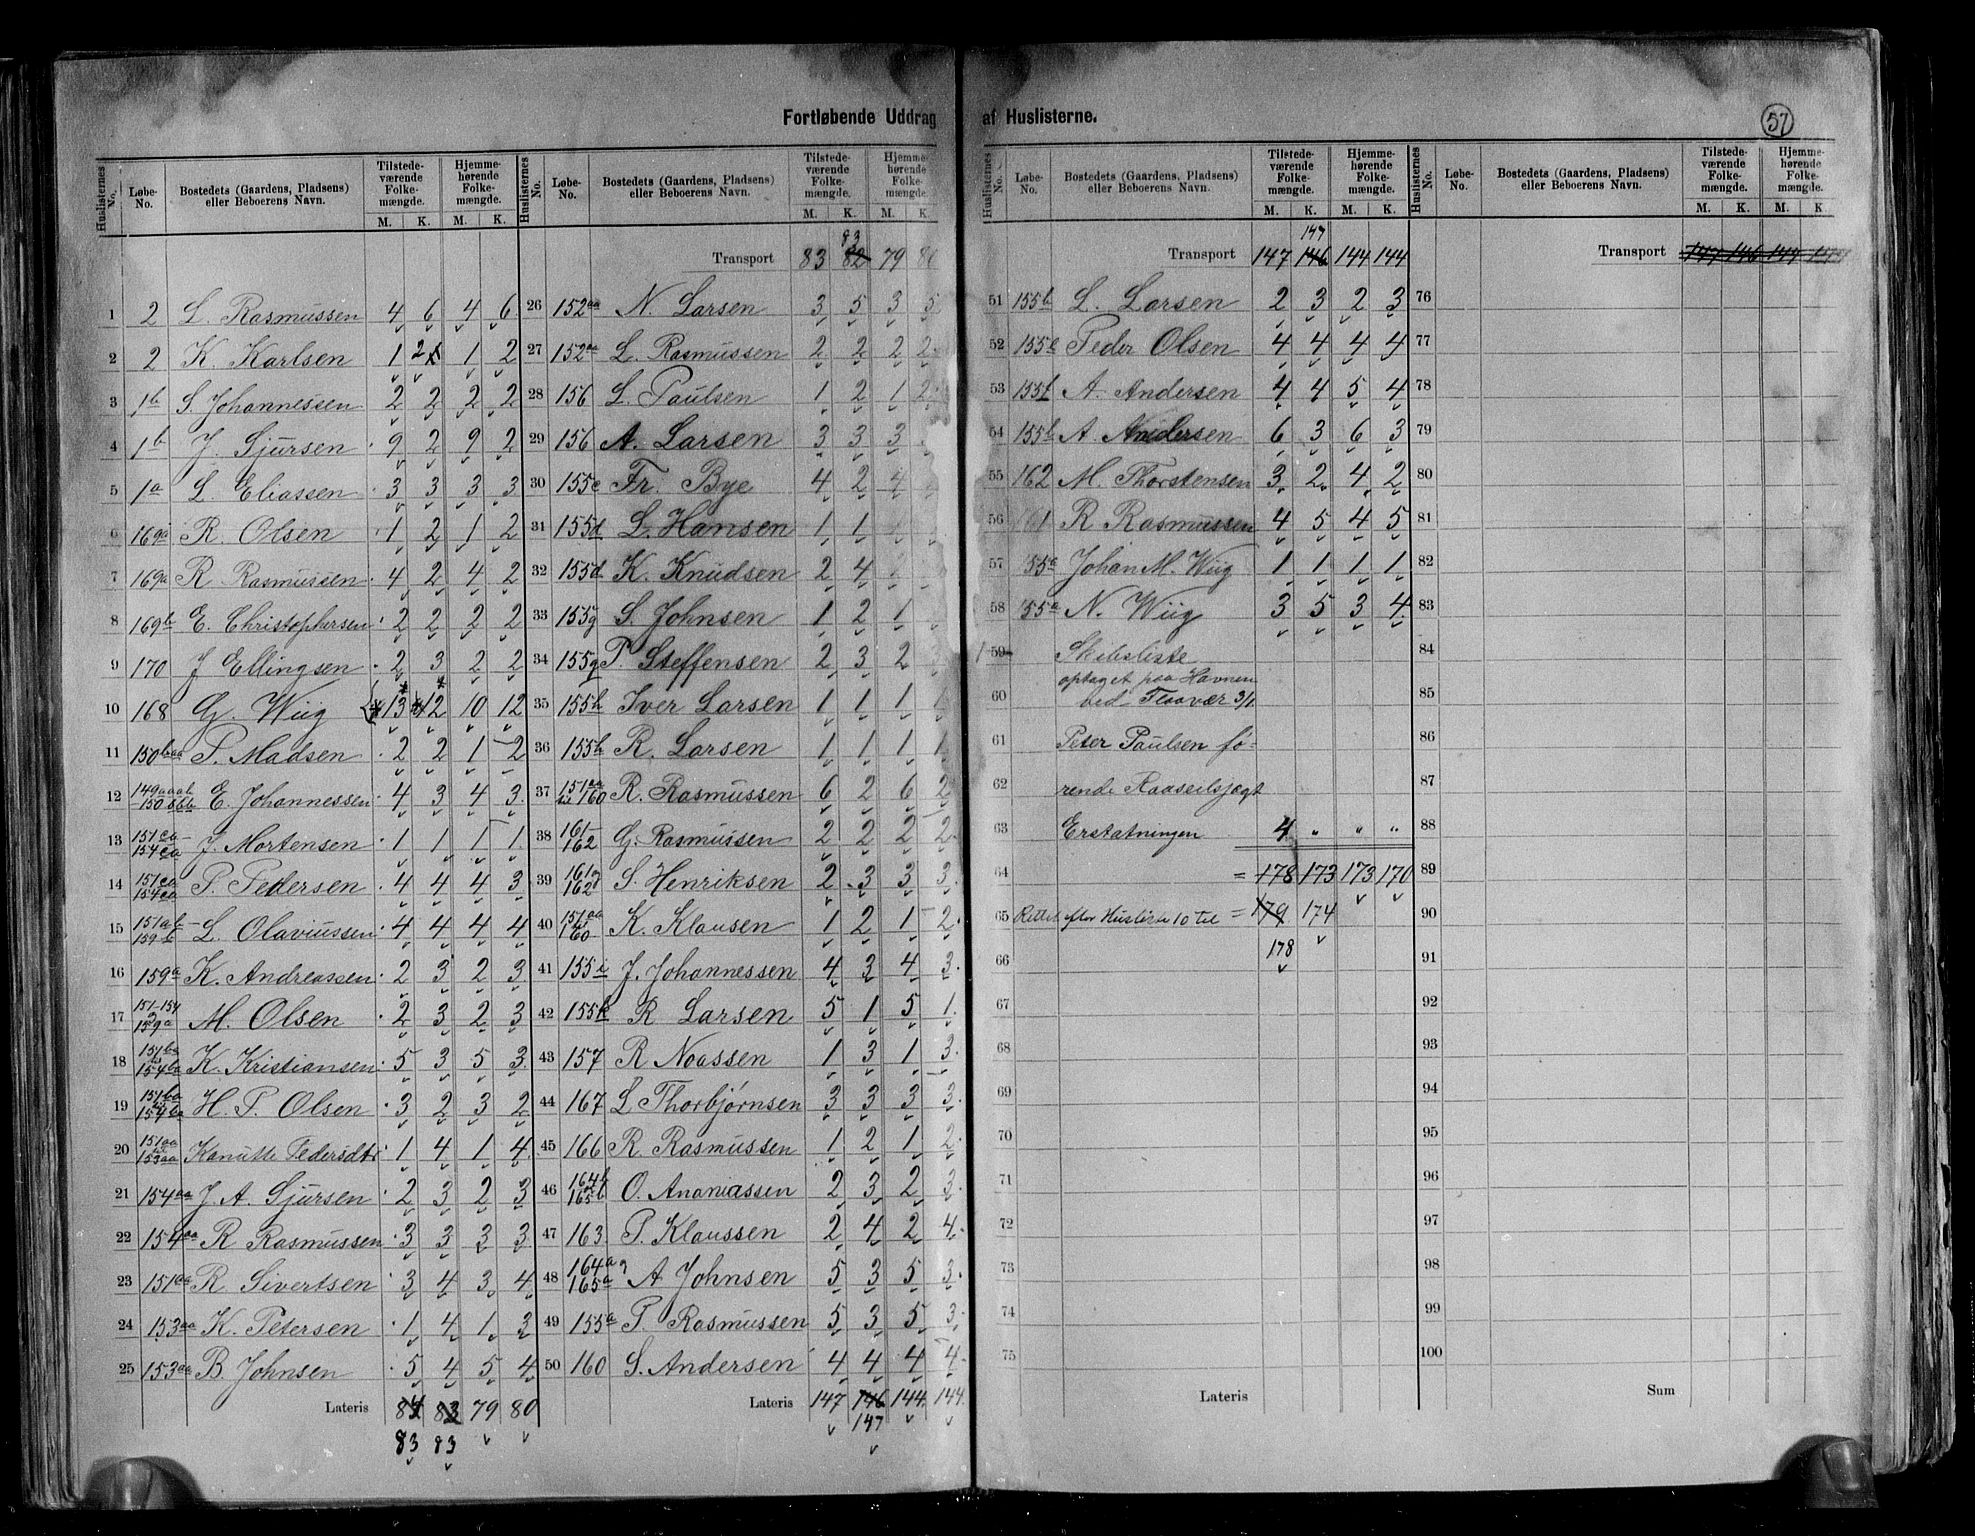 Fortløbende Uddrag af Huslisterne.
57
Huslisternes No. Løbe-No. Bostedets (Gaardens, Pladsens) eller Beboerens Navn. Tilstedeværende Folkemængde. M. K. Hjemmehørende Folkemængde. M. K.
1 2 L. Rasmussen 4 6 4 6
2 2 K. Karlsen 1 2 1 2
3 1b S. Johannessen 2 2 2 2
4 1b J. Sjursen 9 2 9 2
5 1a L. Eliassen 3 3 3 3
6 169a R. Olsen 1 2 1 2
7 169a R. Rasmussen 4 2 4 2
8 169b E. Christophersen 2 2 2 2
9 170 J Ellingsen 2 3 2 2
10 168 G. Wiig 13 12 10 12
11 150baa P. Madsen 2 2 1 2
12 E. Johannessen 4 3 4 3
13 151ca 154ca J. Mortensen 1 1 1 1
14 151ca 154ca P. Pedersen 4 4 4 3
15 151ab 159b L. Olaviussen 4 4 4 4
16 159a K. Andreassen 2 3 2 3
17 151-154 159a M. Olsen 2 3 2 3
18 151ba 154ba K. Kristiansen 5 3 5 3
19 151ba 154ba H. P. Olsen 3 2 3 2
20 151aa 153aa Kanutte Pedersdtr 1 4 1 4
21 154aa J. A. Sjursen 2 3 2 3
22 154aa R Rasmussen 3 3 3 3
23 151aa R. Sivertsen 3 4 3 4
24 153aa K. Petersen 1 4 1 3
25 153aa B. Johnsen 5 4 5 4
Lateris 84 83 79 80
83 83
Huslisternes No. Løbe-No. Bostedets (Gaardens, Pladsens) eller Beboerens Navn. Tilstedeværende Folkemængde. M. K. Hjemmehørende Folkemængde. M. K.
83
Transport 83 82 79 80
26 152aa N. Larsen 3 5 3 5
27 152aa L. Rasmussen 2 2 2 2
28 156 L. Paulsen 1 2 1 2
29 156 A. Larsen 3 3 3
30 155c Fr. Bye 4 2 4
31 155d L. Hansen 1 1
32 155d K. Knudsen 2 4
33 155g S. Johnsen 1 2 1
34 155g P. Steffensen 2 3 2 3
35 155h Iver Larsen 1 1 1 1
36 155h R. Larsen 1 1 1 1
37 151aa til 160 R. Rasmussen 6 2 6 2
38 161-162 G. Rasmussen 2 2 2 2
39 161 162 S. Henriksen 2 3 3 3
40 151aa til 160 K. Klausen 1 2 1 2
41 155i J. Johannessen 4 3 4 3
42 155k R Larsen 5 1 5 1
43 157 R Noassen 1 3 1 3
44 167 L Thorbjørnsen 3 3 3 3
45 166 R. Rasmussen 1 2 1 2
46 164b 165b O. Ananiassen 2 3 2 3
47 163 P. Klaussen 2 4 2 4
48 164a 165a A Johnsen 5 3 5 3
49 155a P. Rasmussen 5 3 5 3
50 160 S. Andersen 4 4 4 4
Lateris 147 146 144 144
147
Huslisternes No. Løbe-No. Bostedets (Gaardens, Pladsens) eller Beboerens Navn. Tilstedeværende Folkemængde. M. K. Hjemmehørende Folkemængde. M. K.
147
Transport 147 146 144 144
51 155b L. Larsen 2 3 2 3
52 155e Peder Olsen 4 4 4 4
53 155f A. Andersen 4 4 5 4
54 155b A. Andersen 6 3 6 3
55 162 M. Thorstensen 3 2 4 2
56 161 R Rasmussen 4 5 4 5
57 55a Johan M. Wiig 1 1 1 1
58 55a N. Wiig 3 5 3 4
59 Skibsliste
60 optaget paa Havnen
ved Flaavær 3/1
61 Peter Paulsen fø-
62 rende Raaseilsjægt
63 Erstatningen 4 " " "
64 = 178 173 173 170
65 Rettet efter Husliste 10 til = 179 174
66 178
67
68
69
70
71
72
73
74
75
Lateris
Huslisternes No. Løbe-No. Bostedets (Gaardens, Pladsens) eller Beboerens Navn. Tilstedeværende Folkemængde. M. K. Hjemmehørende Folkemængde. M. K
Transport 147 146 144 144
76
77
78
79
80
81
82
83
84
85
86
87
88
89
90
91
92
93
94
95
96
97
98
99
100
Sum